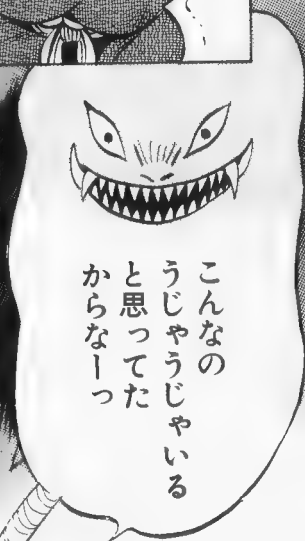 こんなの
うじゃうじゃいる
と思ってた
からなーっ